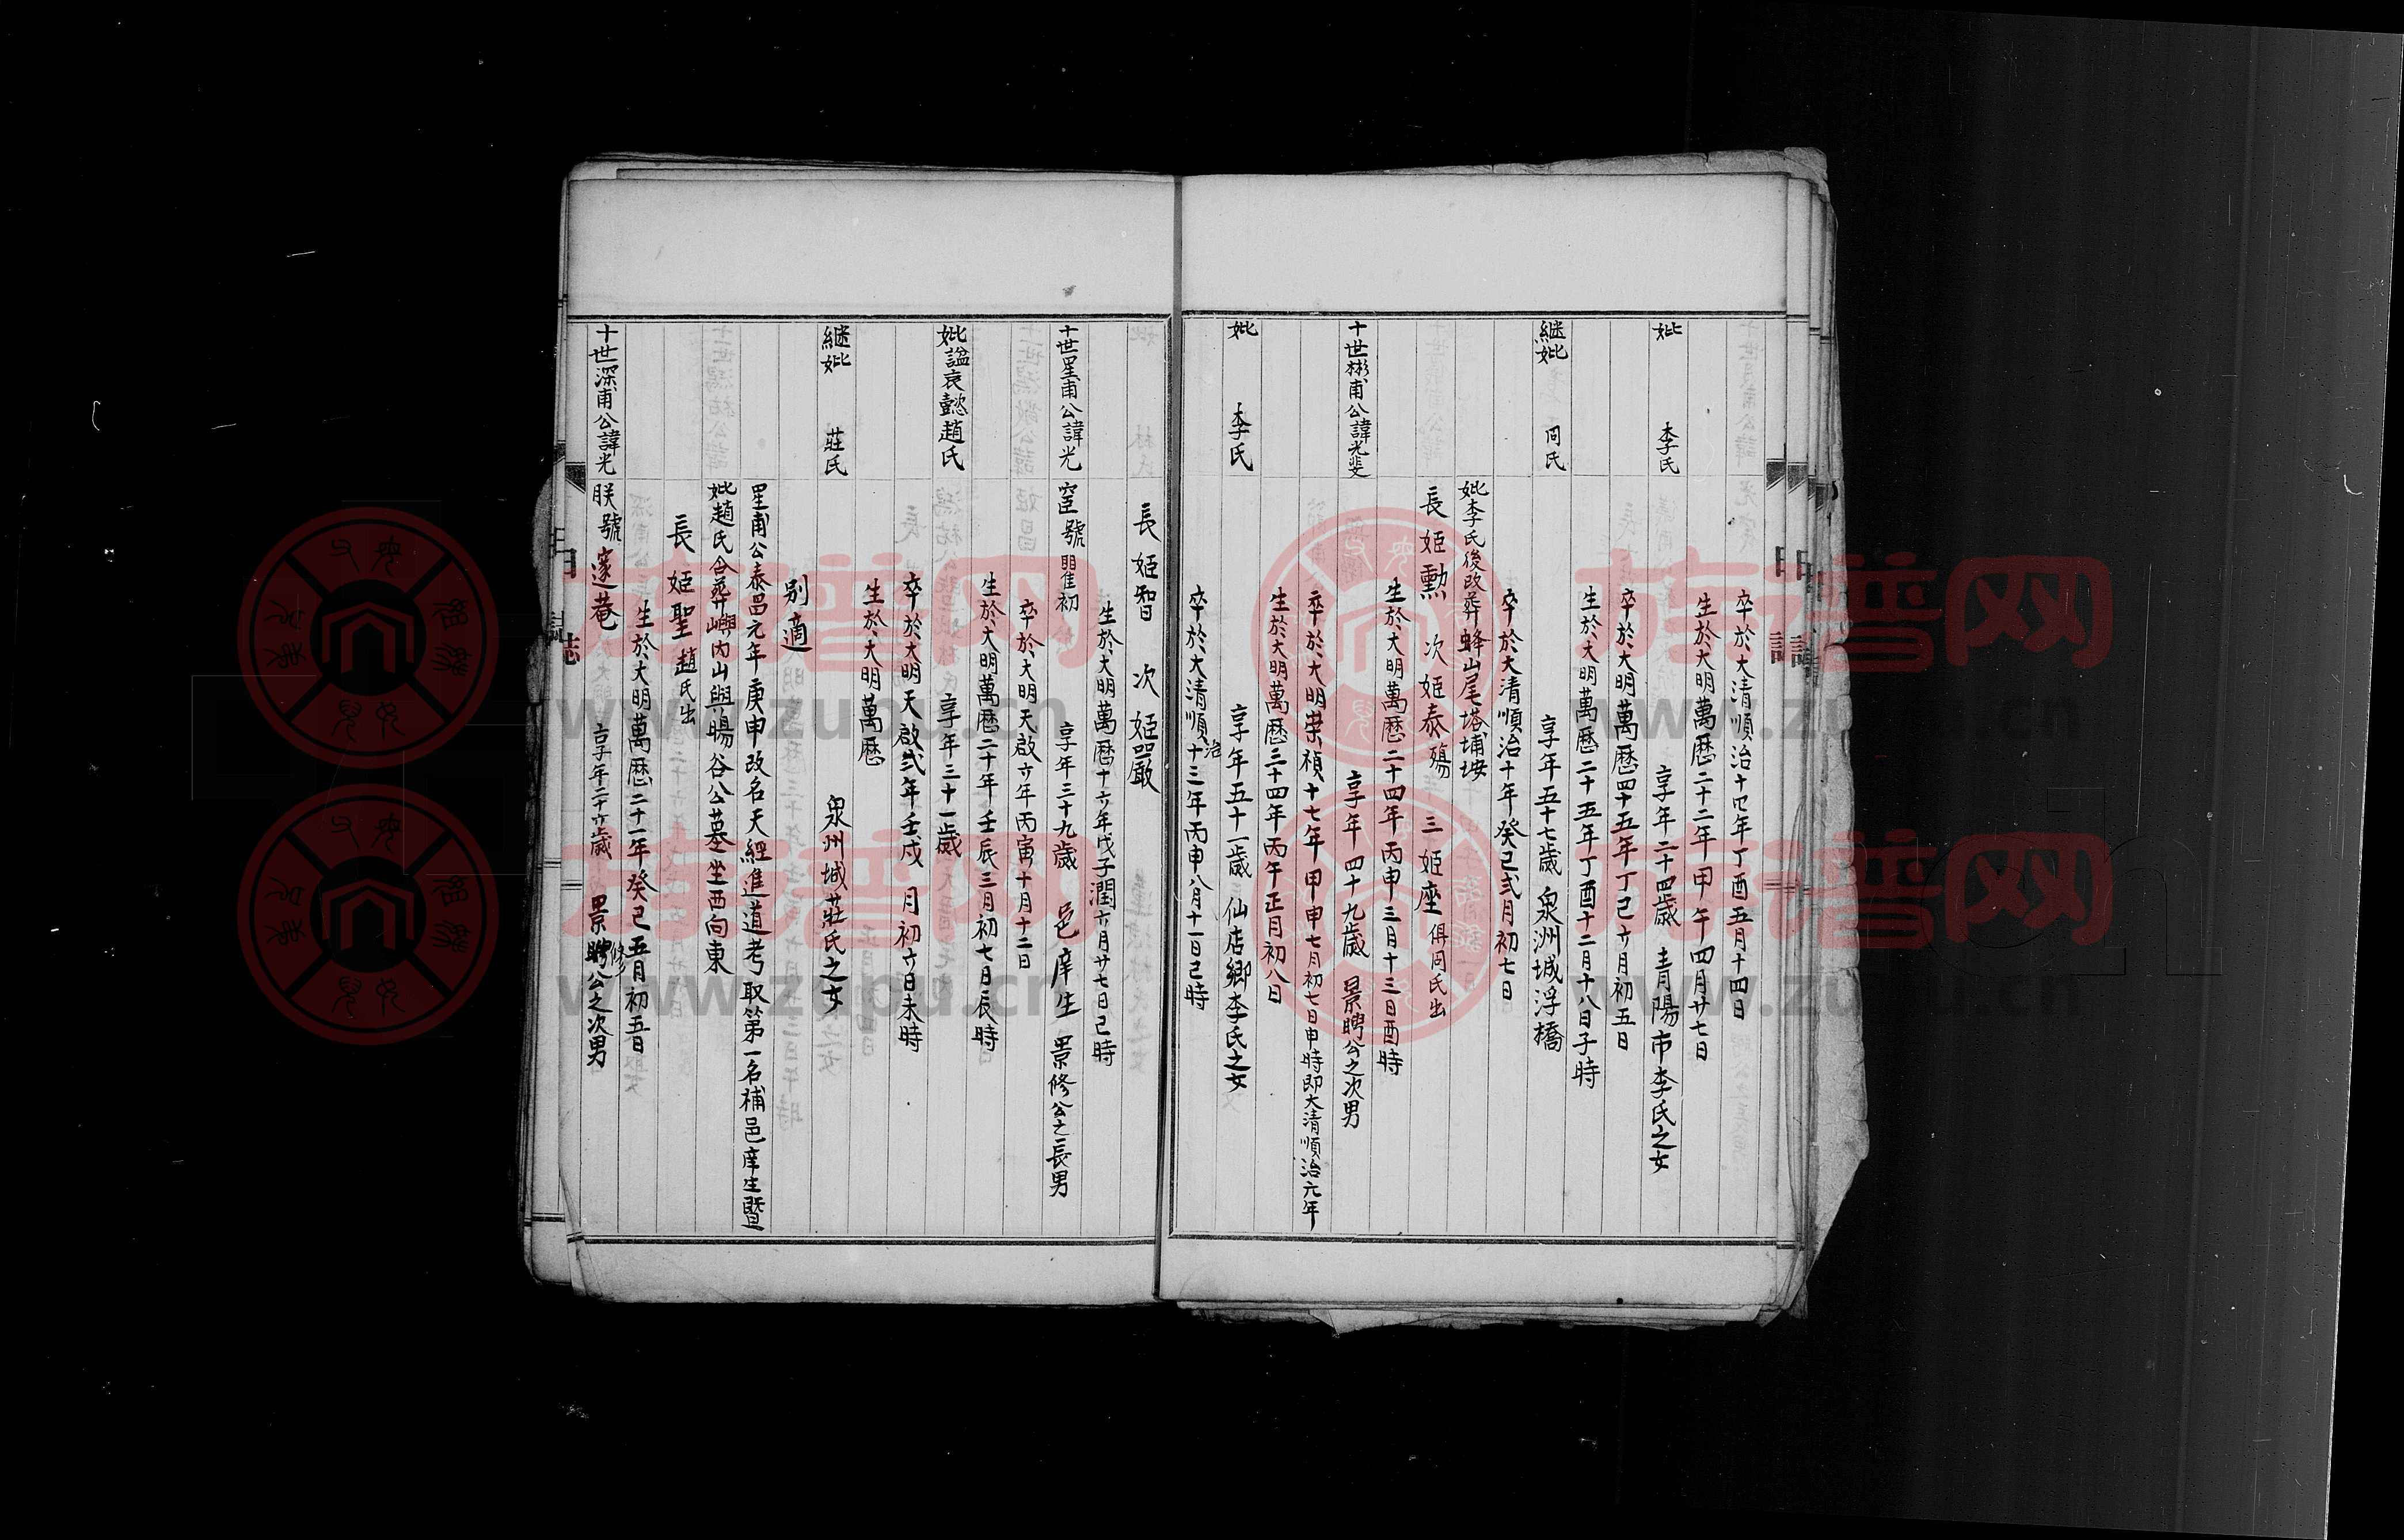 卒於大清順治十四年丁酉五月十四日
生於大明萬歷二十二年甲午四月廿七日
妣 李氏 享年二十四歲 青陽市李氏之女
卒於大明萬歷四十五年丁巳六月初五日
生於大明萬歷二十五年丁酉十二月十八日子時
継妣 同氏 享年五十七歲 泉洲城浮橋
卒於大清順治十年癸巳弍月初七日
妣李氏後改葬蜂山尾塔埔垵
長姬勲 次姬泰殤 三姬座 俱同氏出
生於大明萬歷二十四年丙申三月十三日酉時
十世彬甫公諱光斐 享年四十九歲 景聘公之次男
卒於大明崇禎十七年甲申七月初七日申時即大清順治元年
生於大明萬歷三十四年丙午正月初八日
妣 李氏 享年五十一歲 三仙店鄉李氏之女
卒於大清順治十三年丙申八月十一日己時
長姬智 次姬嚴
生於大明萬歷十六年戊子潤六月廿七日己時
十世星甫公諱光 號 初 享年三十九歲 邑庠生 景修公之長男
卒於大明天啟六年丙寅十月十二日
生於大明萬歷二十年壬辰三月初七日辰時
妣諡哀懿趙氏 享年三十一歲
卒於大明天啟弍年壬戌 月初六日未時
生於大明萬歷
継妣 莊氏 泉州城莊氏之女
別適
星甫公泰昌元年庚申改名天經進道考取第一名補邑庠生暨
妣趙氏合葬嶼內山與暘谷公墓坐西向東
長姬聖 趙氏出
生於大明萬歷二十一年癸巳五月初五日
十世深甫公諱光 號邃菴 享年二十六歲 景修公之次男
族谱网
www.zupu.cn
族谱网
www.zupu.cn
族谱网
www.zupu.cn
族谱网
www.zupu.cn